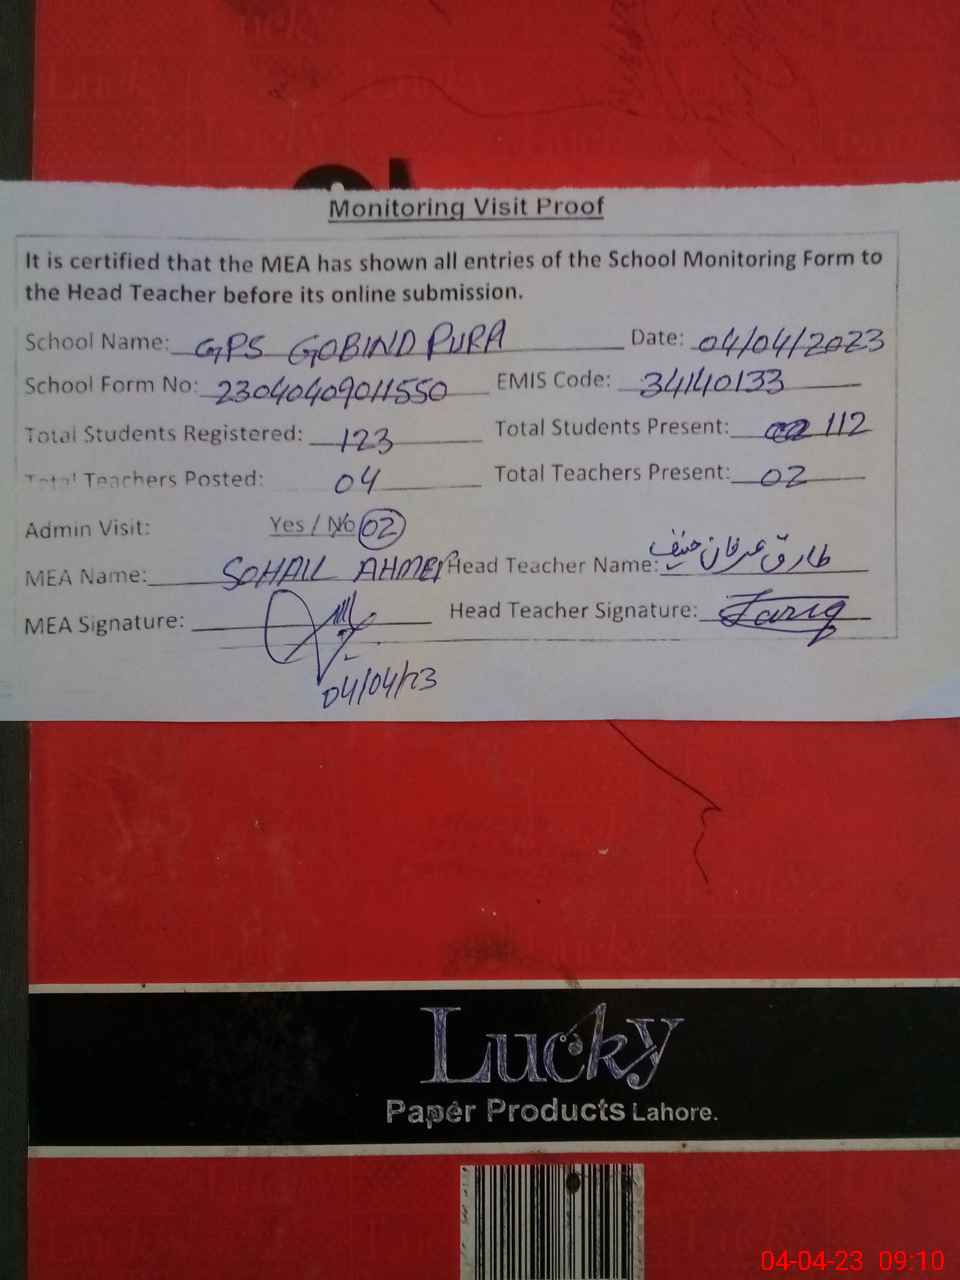 Monitoring Visit Proof
It is certified that the MEA has shown all entries of the School Monitoring Form to
the Head Teacher before its online submission.
School Name: GPS GOBIND PURA Date: 04/04/2023
School Form No: 23040409011550 EMIS Code: 34140133
Total Students Registered: 123 Total Students Present: 112
Total Teachers Posted: 04 Total Teachers Present: 02
Admin Visit: Yes / No 02
MEA Name: SOHAIL AHMED Head Teacher Name: طارق عرفان حنیف
MEA Signature: Head Teacher Signature: Tariq
04/04/23
Lucky
Paper Products Lahore.
04-04-23 09:10